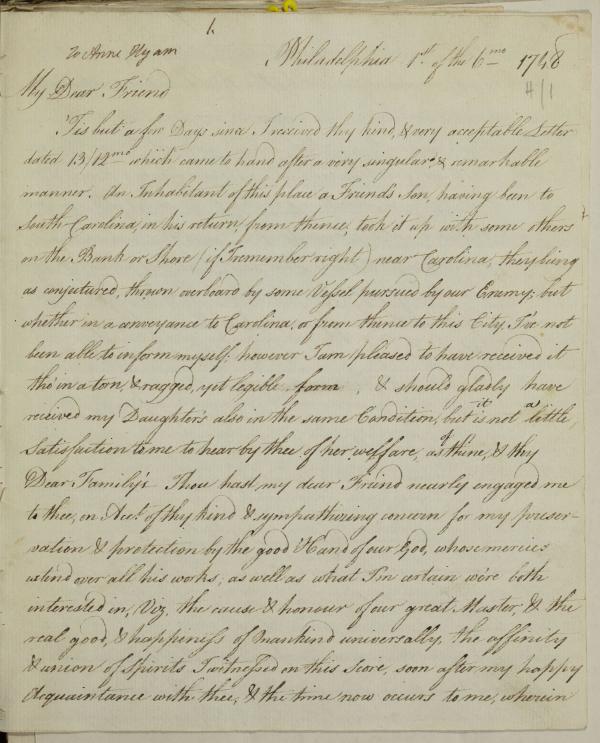 1
To Anne Hyam
Philadelphia 1st. of the 6mo 1748
4/1
My Dear Friend
'Tis but a few Days since I received thy kind, & very acceptable Letter
dated 13/12mo which came to hand after a very singular, & remarkable
manner. An Inhabitant of this place a Friend's Son, having been to
South-Carolina, in his return from thence, took it up with some others
on the Bank or Shore (if I remember right) near Carolina, they being
as conjectured, thrown overboard by some Vessel pursued by our Enemy; but
whether in a conveyance to Carolina, or from thence to this City, I've not
been able to inform myself; however I am pleased to have received it
tho' in a torn, & ragged, yet legible form, & should gladly have
received my Daughter's also in the same Condition, but it is not a little
Satisfaction to me to hear by thee of her welfare, as of thine, & thy
Dear Family's. Thou hast, my dear Friend nearly engaged me
to thee, on Acct. of thy kind & sympathizing concern for my preser-
vation & protection by the good Hand of our God, whose mercies
extend over all his works, as well as what I'm certain we're both
interested in, Viz. the cause & honour of our great Master, & the
real good, & happiness of Mankind universally, the affinity
& union of Spirits I witnessed on this Score, soon after my happy
Acquaintance with thee, & the time now occurs to me, wherein